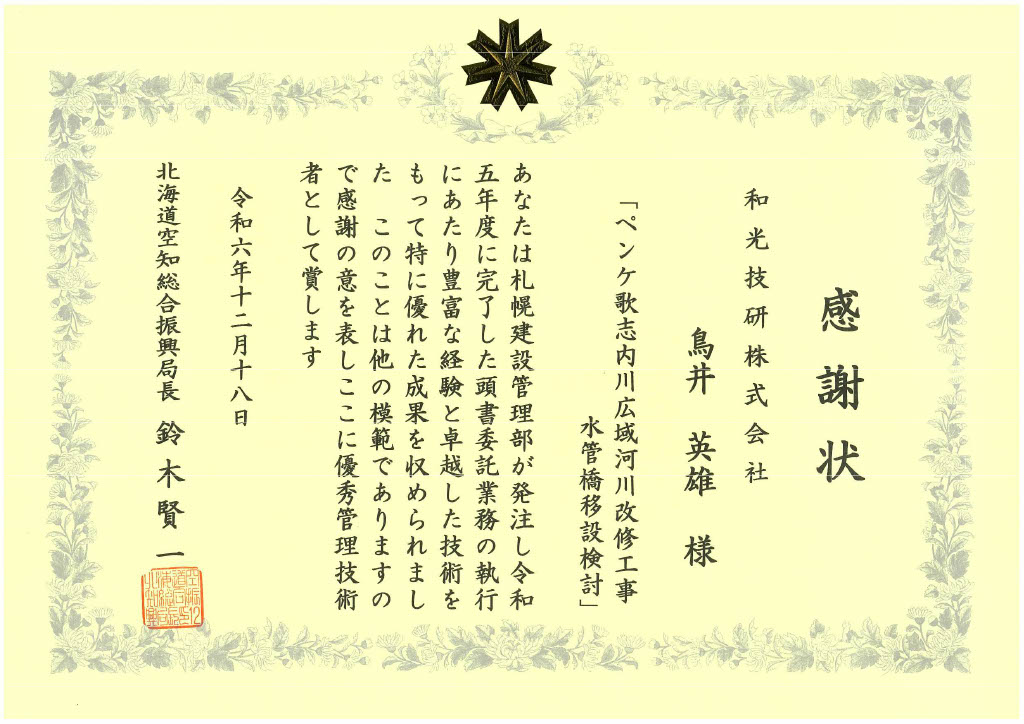 感謝状
和光技研株式会社
鳥井 英雄 様
「ペンケ歌志内川広域河川改修工事
水管橋移設検討」
あなたは札幌建設管理部が発注し令和
五年度に完了した頭書委託業務の執行
にあたり豊富な経験と卓越した技術を
もって特に優れた成果を収められまし
た このことは他の模範でありますの
で感謝の意を表しここに優秀管理技術
者として賞します
令和六年十二月十八日
北海道空知総合振興局長 鈴木賢一